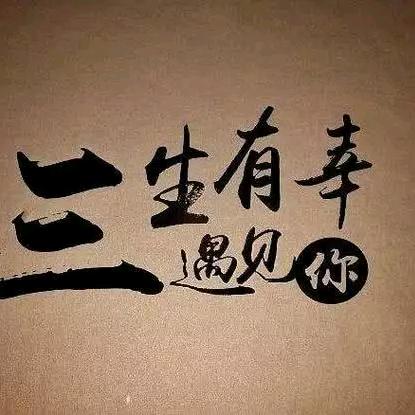 三生有幸
遇见你